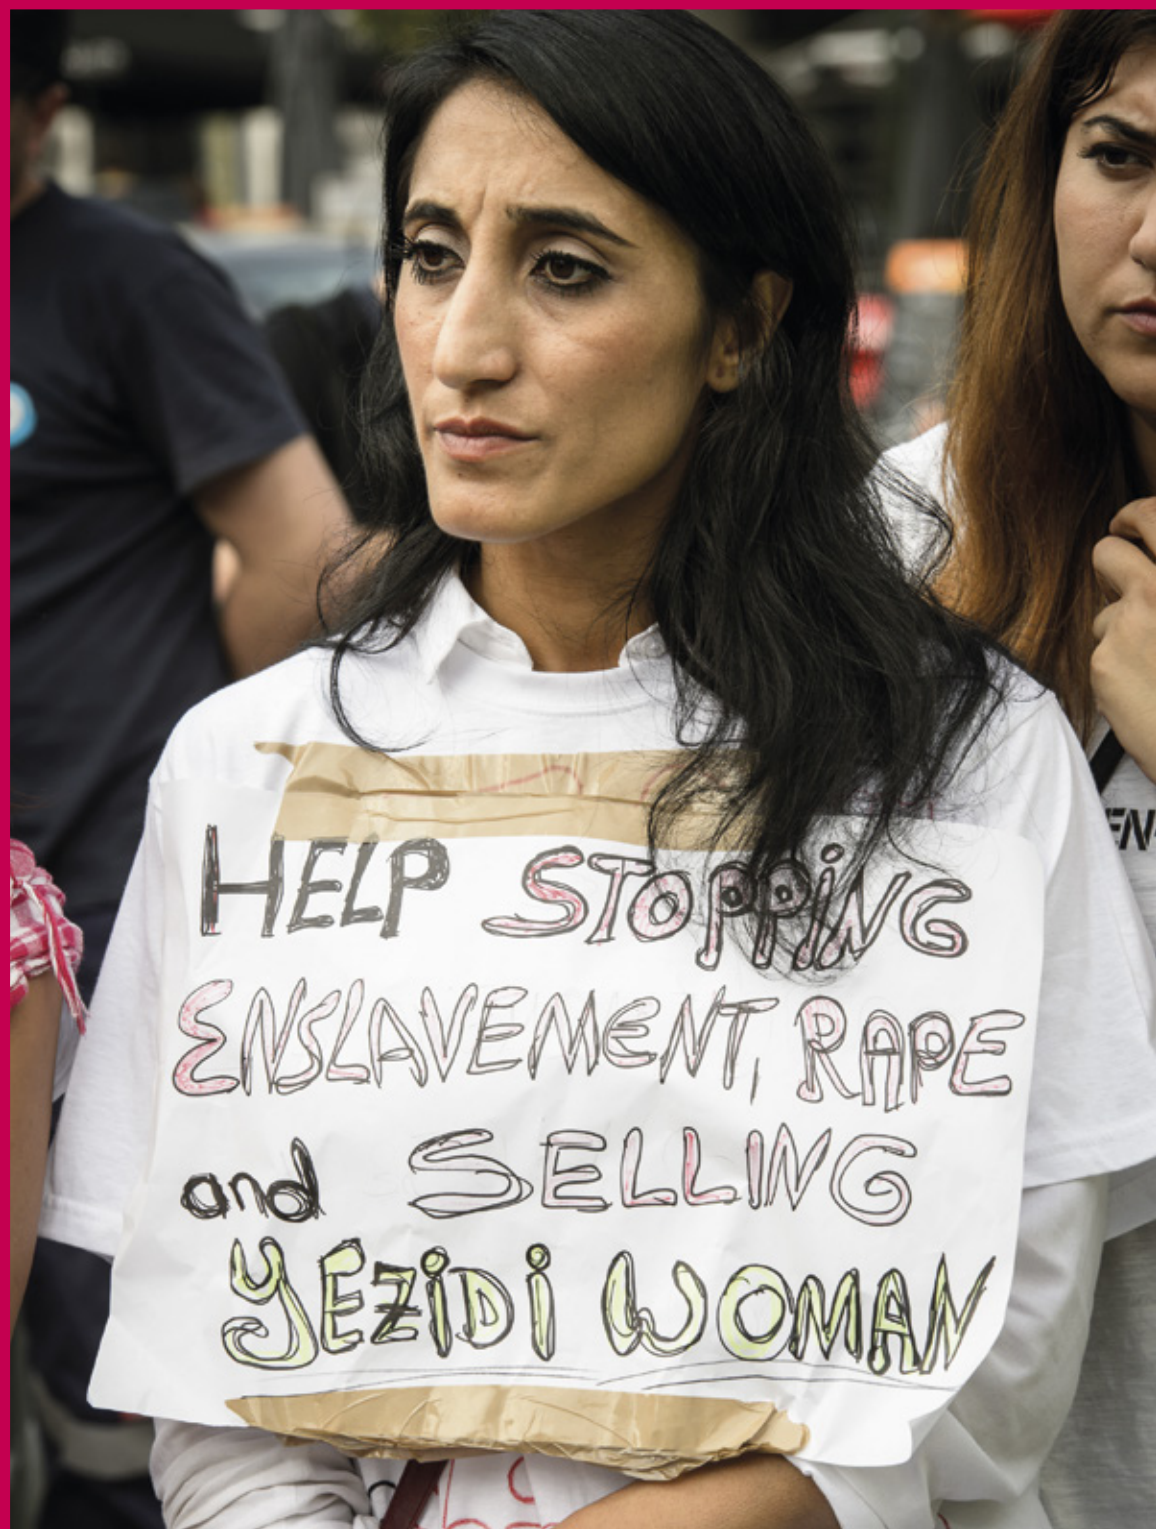 HELP STOPPING
ENSLAVEMENT, RAPE
and SELLING
YEZIDI WOMAN